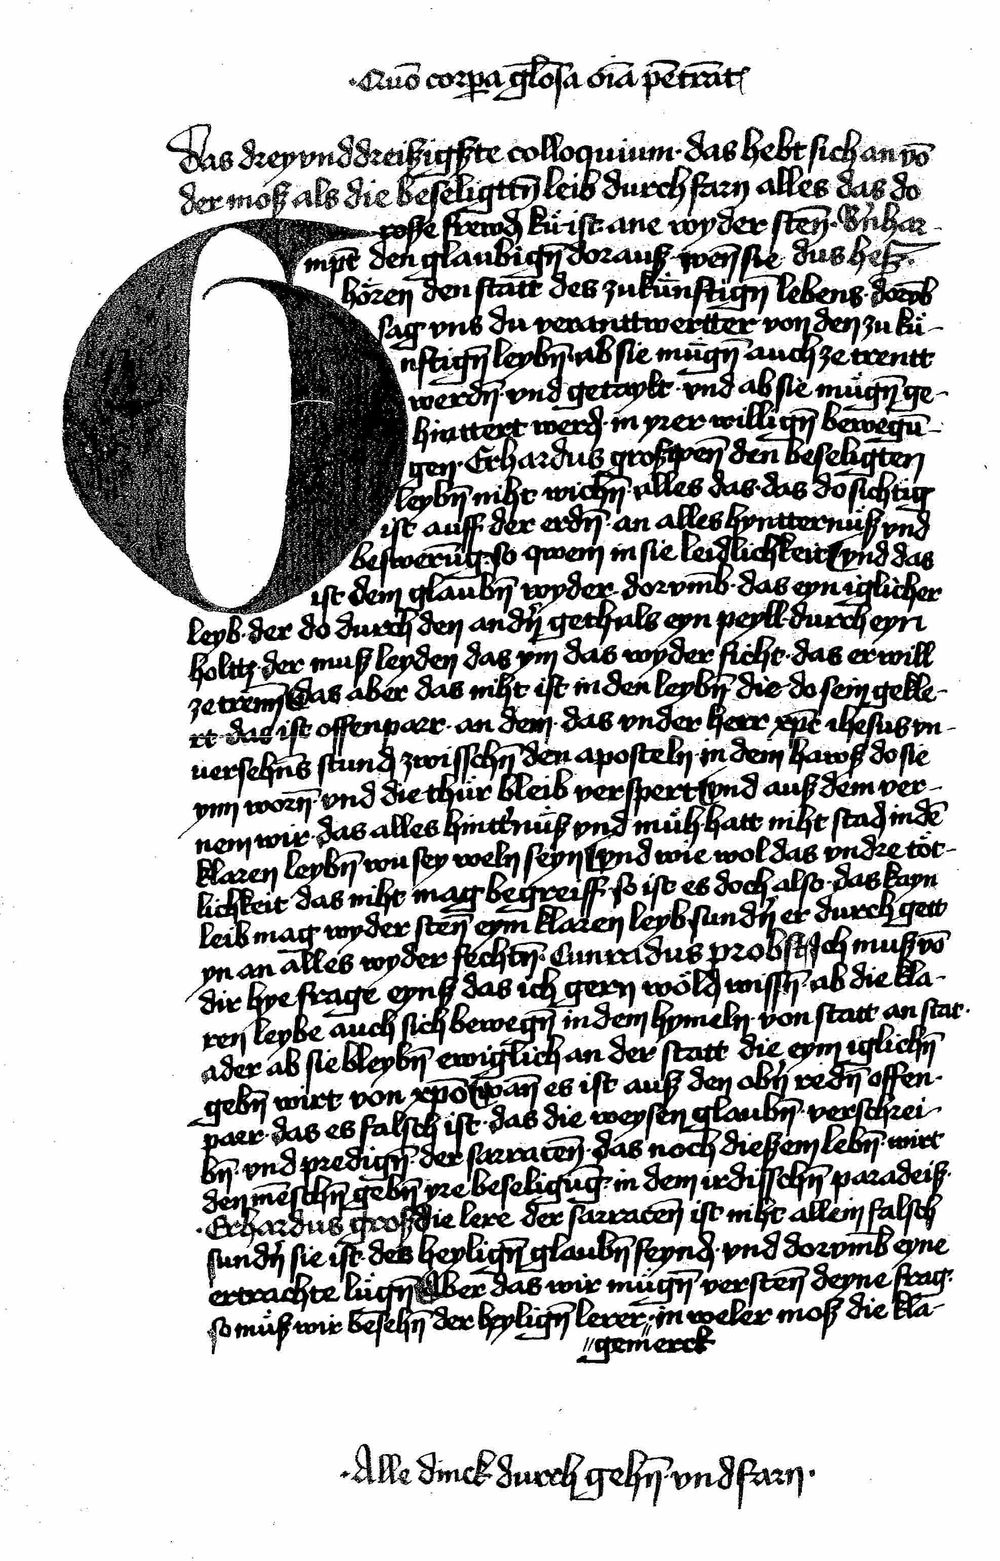 ·Quō corpa gl̄osa oīa pēetrāt
Das dreyvnddreiszigszte colloquium· das hebt sich an vō
der mosz als die beseligttn̄ leib durch farn alles das do
Grosse frewd kṻ ist· ane wyder sten̄·
mpt̄ den glaubign̄ dorausz· wen̄ sie dus
hören den statt des zukünftign̄ lebens· dorvb
sag vns du veranttwertter von den zu kü-
nftign̄ leybn̄· ab sie mügn̄ auch ze trentt
werdn̄· vnd getaylt· vnd ab sie mügn̄ ge-
hinttert werd̄· in yrer willign̄ bewegū-
gen· Erhardus grosz wen̄ den beseligten
leybn̄ niht wichn̄· alles das· das do sichtig
ist auff der erdn̄· an alles hyntternüsz vnd
beswerūg· so qwem in sie leidlichkeit vnd das
ist dem glaubn̄ wyder· dorvmb· das eyn iglicher
leyb· der do durch den andn̄ geth als eyn peyll durch eyn
holtz· der musz leyden das ym das wyder ficht· das er will
ze trenn̄ das aber das niht ist in den leybn̄ die do sein gekle-
rt· das ist offenpaer· an dem· das vnder herr xp̄c ihesus vn-
versehns stund zwisschn̄ den aposteln in dem hawsz do sie
ynn worn̄· vnd die thür bleib verspert vnd ausz dem ver-
nem wir· das alles hinttn̄üsz vnd müh· hatt niht stad in dē
klaren leybn̄ wu sey weln seyn vnd wie wol das vndre töt-
lichkeit das niht mag begreiff· so ist es doch also· das kayn
leib mag wyder sten̄ eym klaren leyb sundn̄ er durch gett
yn an alles wyder fechtn̄· Cunradus probst Ich musz vō
dir hye frage eynsz das ich gern wöld wissn̄· ab die kla-
ren leybe auch sich bewegn̄ in dem hymeln· von statt an stat·
ader ab sie bleybn̄ ewiglich an der statt die eym iglichn̄
gebn̄ wirt von xpō wan̄ es ist ausz den obn̄ redn̄ offen-
paer· das es falsch ist· das die weysen glaubn̄· verschrei-
bn̄· vnd predign̄· der sarracen̄· das noch dieszem lebn̄ wirt
den mēschn̄ gebn̄ yre beseligūg· in dem irdisschn̄ paradeisz·
·Erhardus grosz die lere der sarracen̄ ist niht allein falsch
sundn̄ sie ist· des heylign̄ glaubn̄ feynd· vnd dorvmb eyne
ertrachte lügn̄ Aber das wir mügn̄ versten̄ deyne frag·
so müsz wir besehn̄ der heylign̄ lerer· in weler mosz die kla-
gemerck
·Alle dinck durch gehn̄ vnd farn·